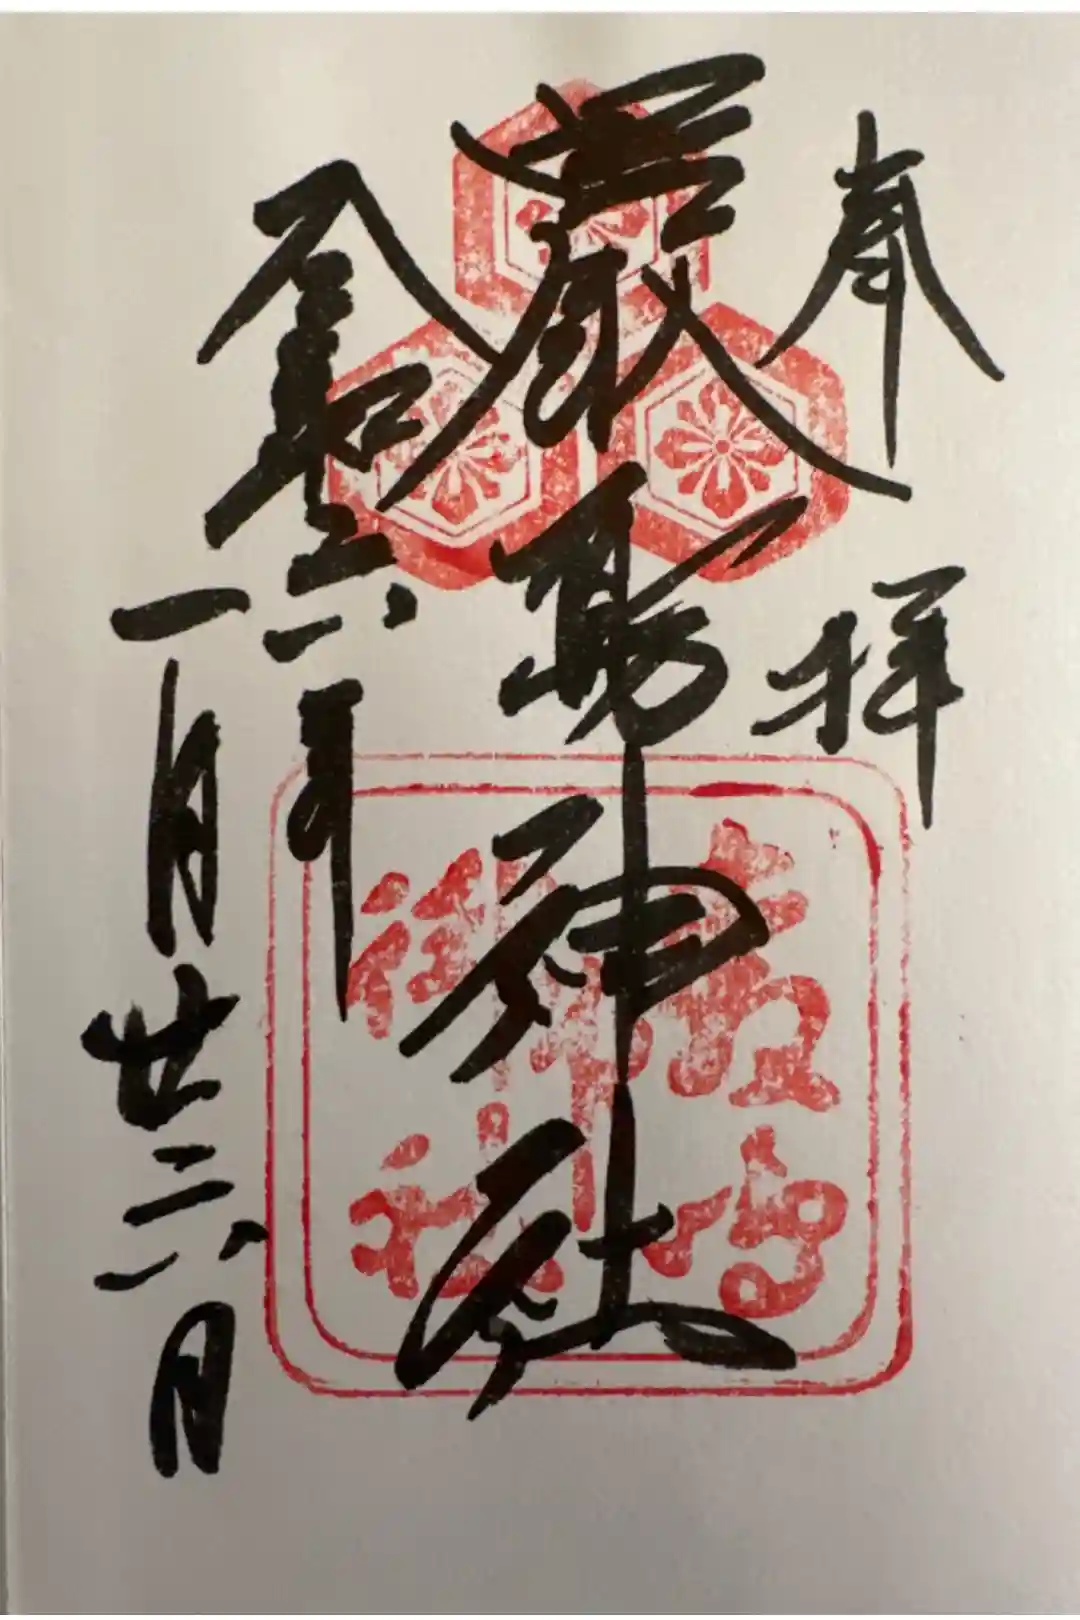 奉拝
嚴島神社
令和六年
一月廿六日
嚴島
神社